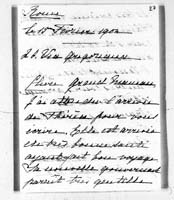 27
Rome
le 15 Février 1902
21 Via Gregoriana
Chère grand Maman
J'ai attendu l'arrivée
de Thérèse pour vous
écrire. Elle est arrivée
en très bonne santé
ayant fait bon voyage
Sa nouvelle gouvernante
parait très gentille